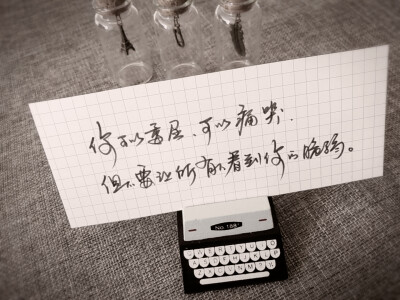 你可以委屈、可以痛哭.
但不要让所有人看到你的脆弱。